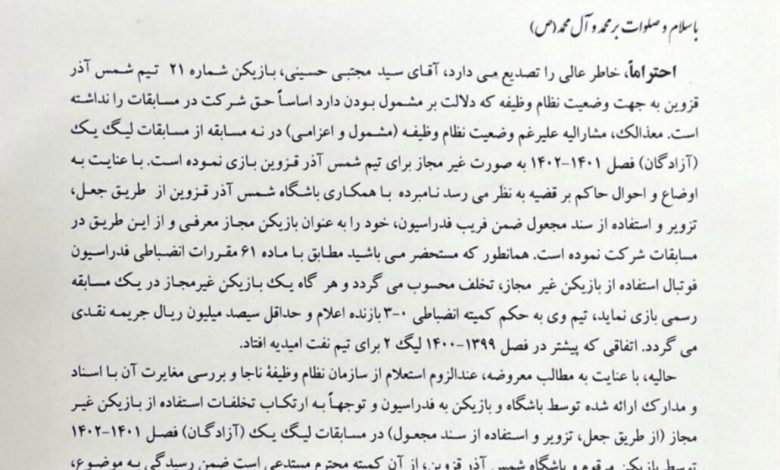 باسلام و صلوات بر محمد و آل محمد (ص)
احتراماً، خاطر عالی را تصدیع می دارد، آقای سید مجتبی حسینی، بازیکن شماره ۲۱ تیم شمس آذر
قزوین به جهت وضعیت نظام وظیفه که دلالت بر مشمول بودن دارد اساساً حق شرکت در مسابقات را نداشته
است. معذالک، مشارالیه علیرغم وضعیت نظام وظیفه (مشمول و اعزامی) در نه مسابقه از مسابقات لیگ یک
(آزادگان) فصل ۱۴۰۱-۱۴۰۲ به صورت غیر مجاز برای تیم شمس آذر قزوین بازی نموده است. با عنایت به
اوضاع و احوال حاکم بر قضیه به نظر می رسد نامبرده با همکاری باشگاه شمس آذر قزوین از طریق جعل،
تزویر و استفاده از سند مجعول ضمن فریب فدراسیون، خود را به عنوان بازیکن مجاز معرفی و از این طریق در
مسابقات شرکت نموده است. همانطور که مستحضر می باشید مطابق با ماده ۶۱ مقررات انضباطی فدراسیون
فوتبال استفاده از بازیکن غیر مجاز، تخلف محسوب می گردد و هر گاه یک بازیکن غیرمجاز در یک مسابقه
رسمی بازی نماید، تیم وی به حکم کمیته انضباطی ۰-۳ بازنده اعلام و حداقل سیصد میلیون ریال جریمه نقدی
می گردد. اتفاقی که پیشتر در فصل ۱۳۹۹-۱۴۰۰ لیگ ۲ برای تیم نفت امیدیه افتاد.
حالیه، با عنایت به مطالب معروضه، عندالزوم استعلام از سازمان نظام وظیفهٔ ناجا و بررسی مغایرت آن با اسناد
و مدارک ارائه شده توسط باشگاه و بازیکن به فدراسیون و توجهاً به ارتکاب تخلفات استفاده از بازیکن غیر
مجاز (از طریق جعل، تزویر و استفاده از سند مجعول) در مسابقات لیگ یک (آزادگان) فصل ۱۴۰۱-۱۴۰۲
توسط بازیکن مرقوم و باشگاه شمس آذر قزوین، از آن کمیته محترم مستدعی است ضمن رسیدگی به موضوع،